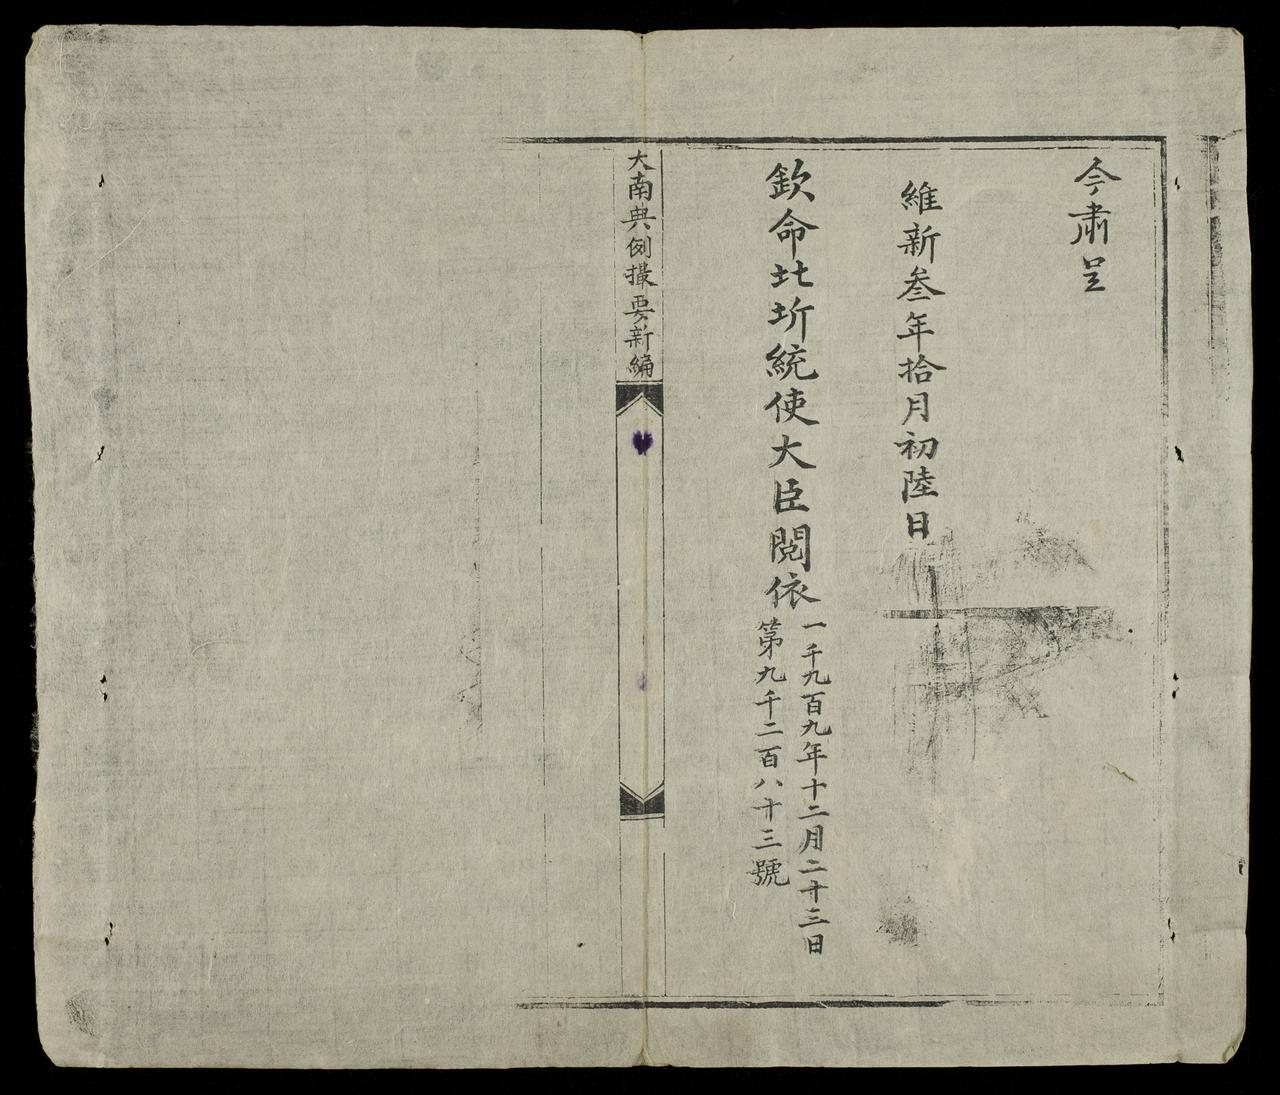 今肅呈
維新叁年拾月初陸日
欽命北圻統使大臣閱依
一千九百九年十二月二十三日
第九千二百八十三號
大南典例撮要新編